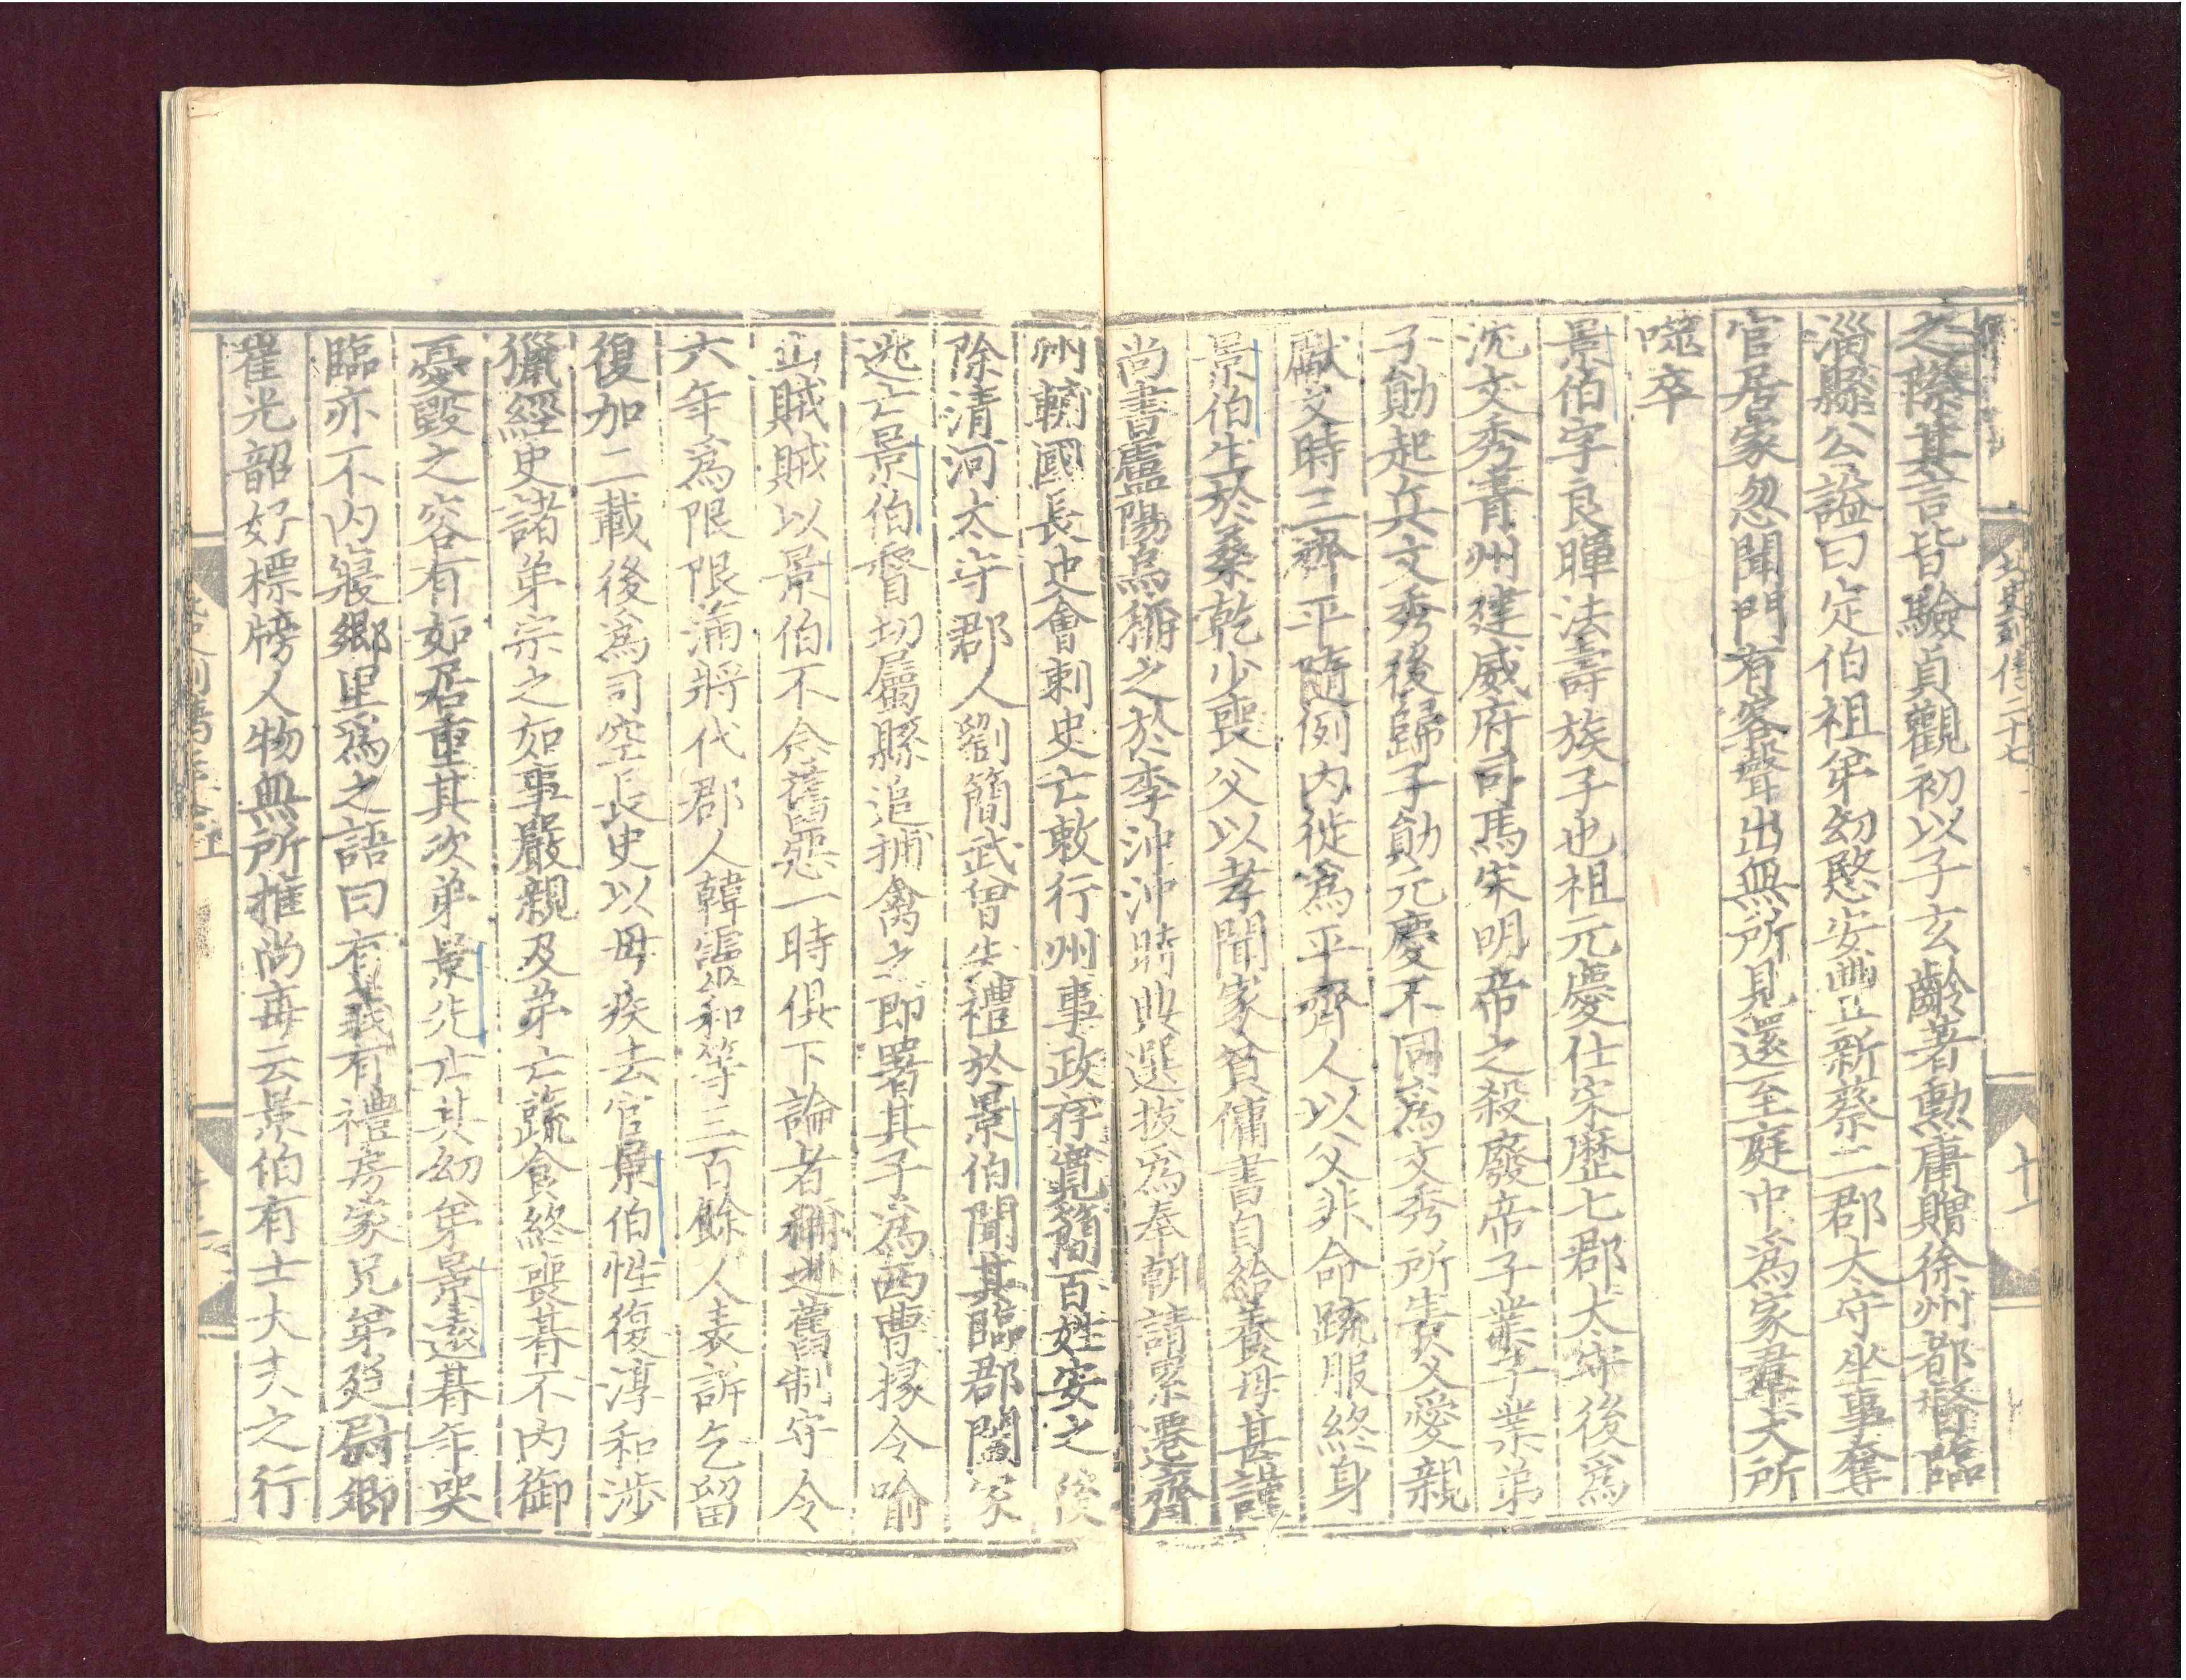 北史列傳二十七
十一
之際其言皆驗貞觀初以子玄齡著勲庸贈徐州都督臨
淄縣公謚曰定伯祖弟幼愍安豐新蔡二郡太守坐事奪
官居家忽聞門有客聲出無所見還至庭中爲家羣犬所
噬卒
景伯字良暉法壽族子也祖元慶仕宋歷七郡太守後爲
沈文秀青州建威府司馬宋明帝之殺廢帝子業子業弟
子勛起兵文秀後歸子勛元慶不同爲文秀所害父愛親
獻文時三齊平隨例内徙爲平齊人以父非命疏服終身
景伯生於桑乾少喪父以孝聞家貧傭書自給養母甚謹
尚書盧陽烏稱之於李沖沖時典選拔爲奉朝請累遷齊
州輔國長史會刺史亡敕行州事政存寬簡百姓安之後
除清河太守郡人劉簡武曾失禮於景伯聞其臨郡闔家
逃亡景伯督切屬縣追捕禽之即署其子爲西曹掾令喻
山賊賊以景伯不念舊惡一時俱下論者稱之舊制守令
六年爲限限滿將代郡人韓靈和等三百餘人表訴乞留
復加二載後爲司空長史以母疾去官景伯性復淳和涉
獵經史諸弟宗之如事嚴親及弟亡蔬食終喪朞不内御
憂毀之容有如居重其次弟景先亡其幼弟景遠朞年哭
臨亦不内寢鄉里爲之語曰有義有禮房家兄弟廷尉卿
崔光韶好標牓人物無所推尚每云景伯有士大夫之行